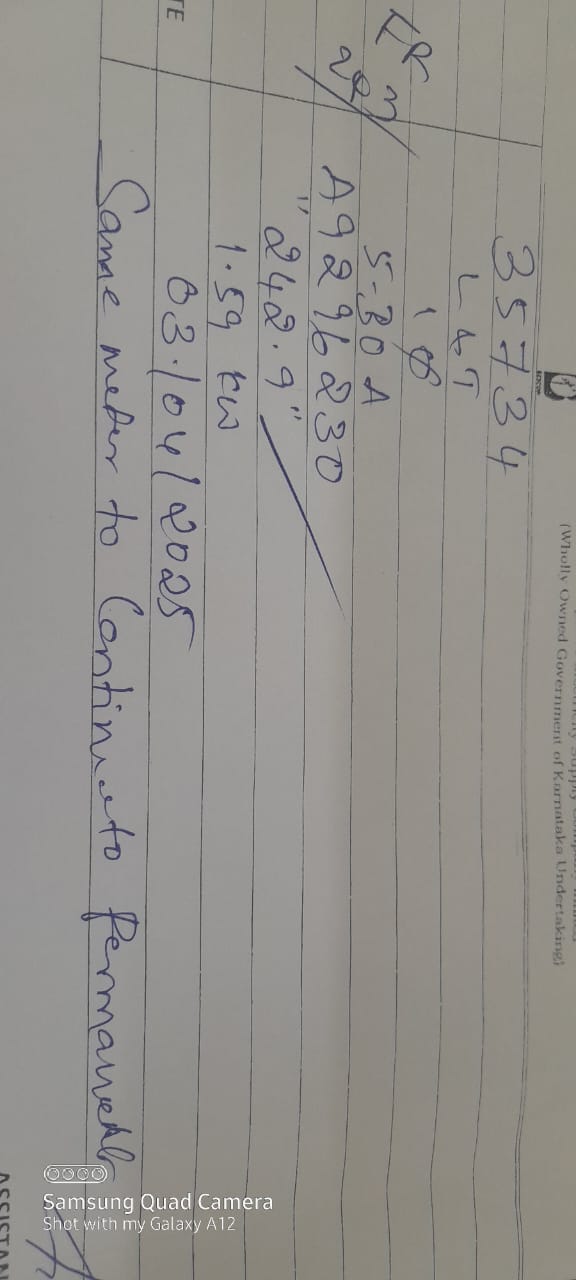 (Wholly Owned Government of Karnataka Undertaking)
35734
L&T
1Ø
5-30 A
A9296230
"242.9"
1.59 kW
03/04/2025
Same meter to Continue to Permanent
TE
ASSISTAN
Samsung Quad Camera
Shot with my Galaxy A12